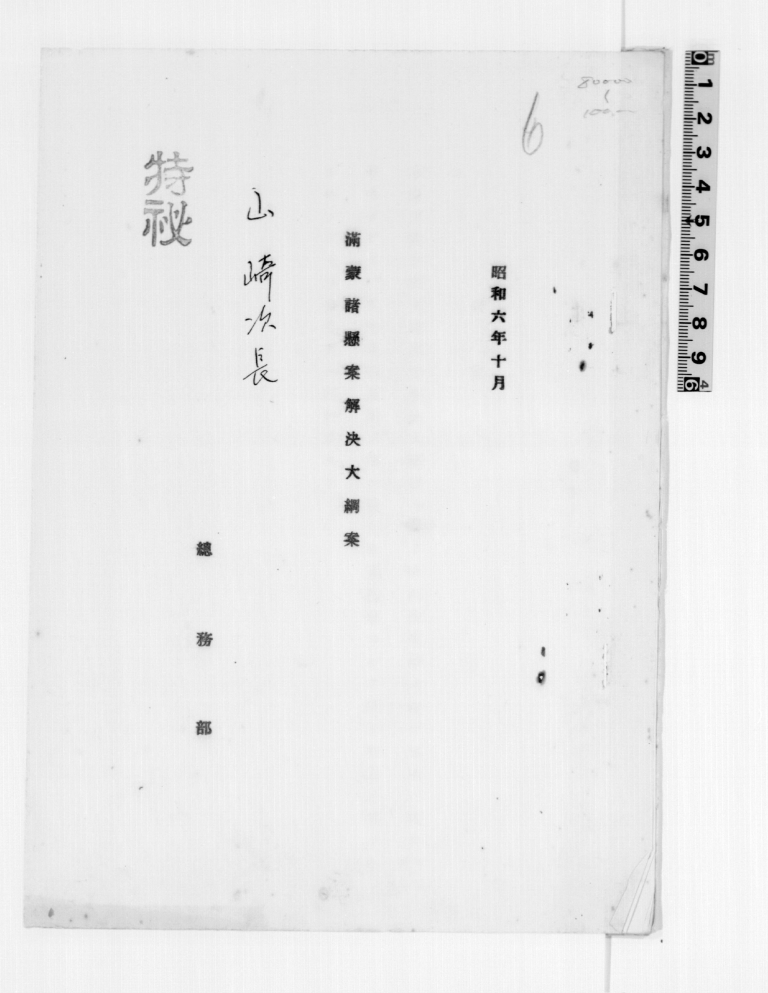 6
昭和六年十月
滿蒙諸懸案解決大綱案
山崎次長
總務部
特祕
0 1 2 3 4 5 6 7 8 9